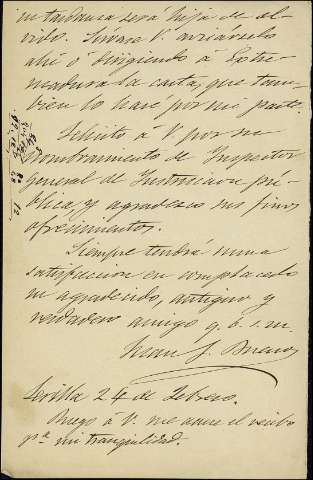 mi tardanza será hija de ol-
vido. Sirvase V. avisárselo
ahí ó dirigiendo á Estre-
madura la carta, que tam-
bien lo hare por mi parte.
Felicito á V. por su
nombramiento de Inspector
General de Instruccion pú-
blica, y agradezco sus finos
ofrecimientos.
Siempre tendrá suma
satisfaccion en complacerlo
su agradecido, antiguo y
verdadero amigo q. b. s. m.
Juan J. Bueno
Sevilla 24 de Febrero.
Ruego á V. me acuse el recibo
pª mi tranquilidad.